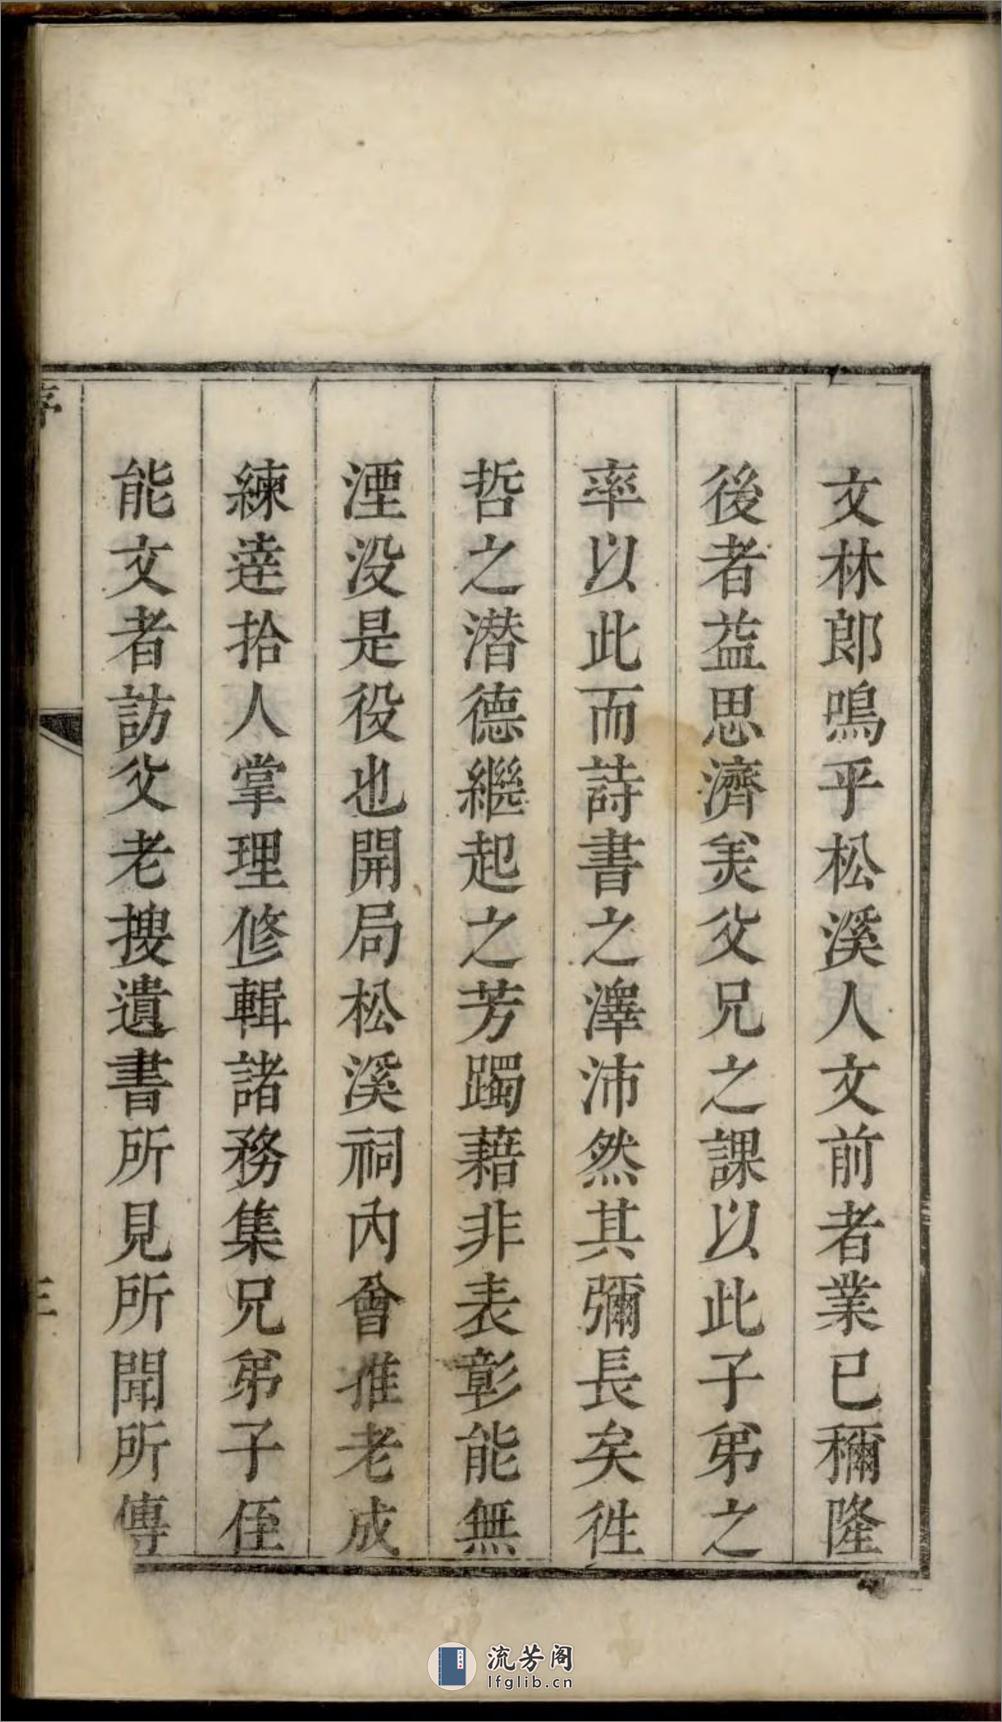 文林郎鳴乎松溪人文前者業已稱隆
後者益思濟美父兄之課以此子弟之
率以此而詩書之澤沛然其彌長矣徃
哲之潜德繼起之芳躅藉非表彰能無
湮没是役也開局松溪祠內會推老成
練達拾人掌理修輯諸務集兄弟子侄
能文者訪父老搜遺書所見所聞所傳
序
三
流芳阁
lfglib.cn